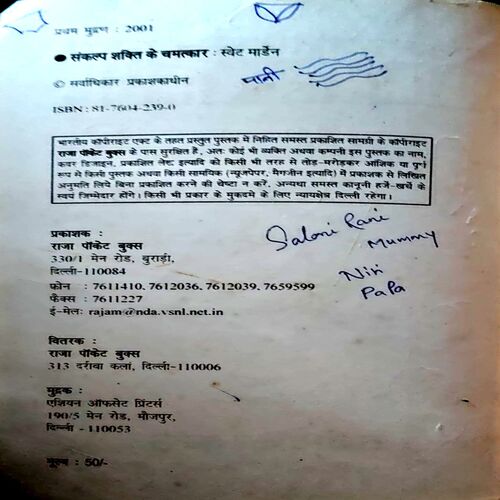 प्रथम मुद्रण : 2001
● संकल्प शक्ति के चमत्कार : स्वेट मार्डेन
पानी
© सर्वाधिकार प्रकाशकाधीन
ISBN : 81-7604-239-0
भारतीय कॉपीराइट एक्ट के तहत प्रस्तुत पुस्तक में निहित समस्त प्रकाशित सामग्री के कॉपीराइट
राजा पॉकेट बुक्स के पास सुरक्षित हैं, अतः कोई भी व्यक्ति अथवा कम्पनी इस पुस्तक का नाम,
कवर डिजाइन, प्रकाशित मैटर इत्यादि को किसी भी तरह से तोड़-मरोड़कर आंशिक या पूर्ण
रूप से किसी पुस्तक अथवा किसी सामयिक (न्यूजपेपर, मैगजीन इत्यादि) में प्रकाशक से लिखित
अनुमति लिये बिना प्रकाशित करने की चेष्टा न करें, अन्यथा समस्त कानूनी हर्जे-खर्चे के
स्वयं जिम्मेदार होंगे। किसी भी प्रकार के मुकदमे के लिए न्यायक्षेत्र दिल्ली रहेगा।
Saloni Rani
Mummy
Niri
PaPa
प्रकाशक :
राजा पॉकेट बुक्स
330/1 मेन रोड, बुराड़ी,
दिल्ली-110084
फोन : 7611410. 7612036. 7612039. 7659599
फैक्स : 7611227
ई-मेलः rajam@nda.vsnl.net.in
वितरक :
राजा पॉकेट बुक्स
313 दरीबा कलां, दिल्ली-110006
मुद्रक :
एशियन ऑफसेट प्रिंटर्स
190/5 मेन रोड, मौजपुर,
दिल्ली - 110053
मूल्य : 50/-